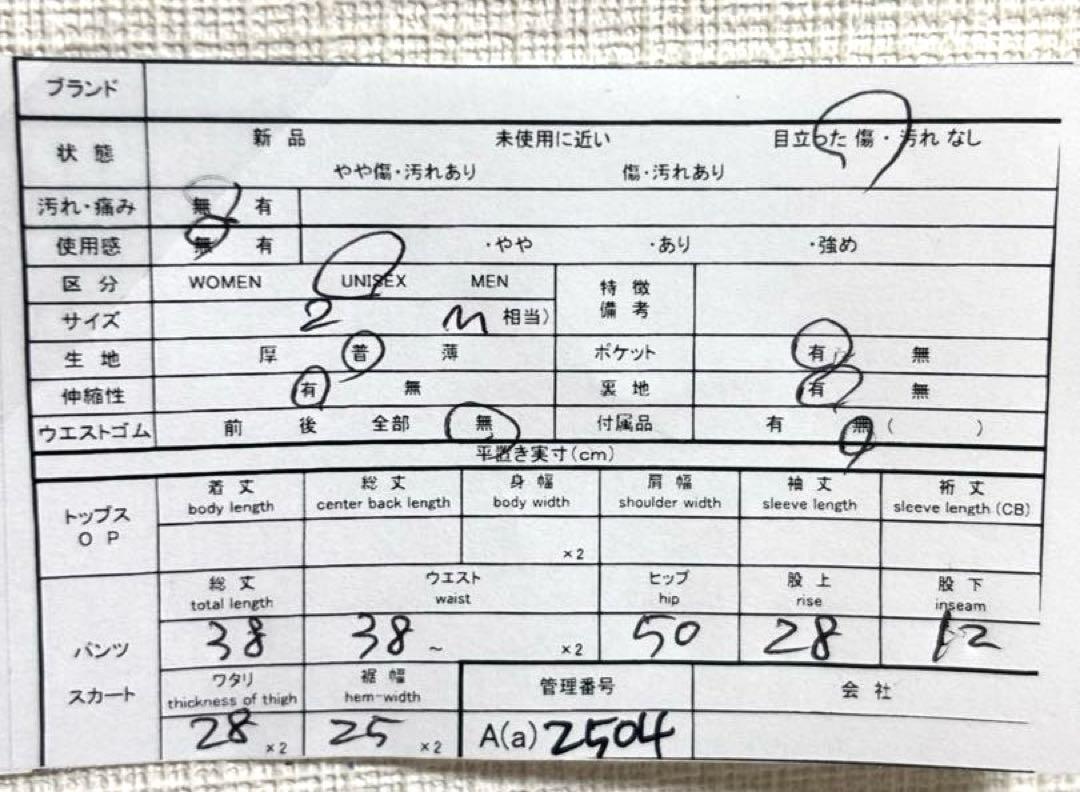 ブランド
状 態 新 品 未使用に近い 目立った 傷・汚れ なし
やや傷・汚れあり 傷・汚れあり
汚れ・痛み 無 有
使用感 無 有 ・やや ・あり ・強め
区 分 WOMEN UNISEX MEN 特 徴
備 考
サイズ 2 M 相当)
生 地 厚 普 薄 ポケット 有 無
伸縮性 有 無 裏 地 有 無
ウエストゴム 前 後 全部 無 付属品 有 無 ( )
平置き実寸(cm)
トップス
O P
着 丈 総 丈 身 幅 肩 幅 袖 丈 裄 丈
body length center back length body width shoulder width sleeve length sleeve length (CB)
×2
パンツ
スカート
総 丈 ウエスト ヒップ 股 上 股 下
total length waist hip rise inseam
38 38 ~ ×2 50 28 12
ワタリ 裾 幅 管理番号 会 社
thickness of thigh hem-width
28 ×2 25 ×2 A(a) 2504